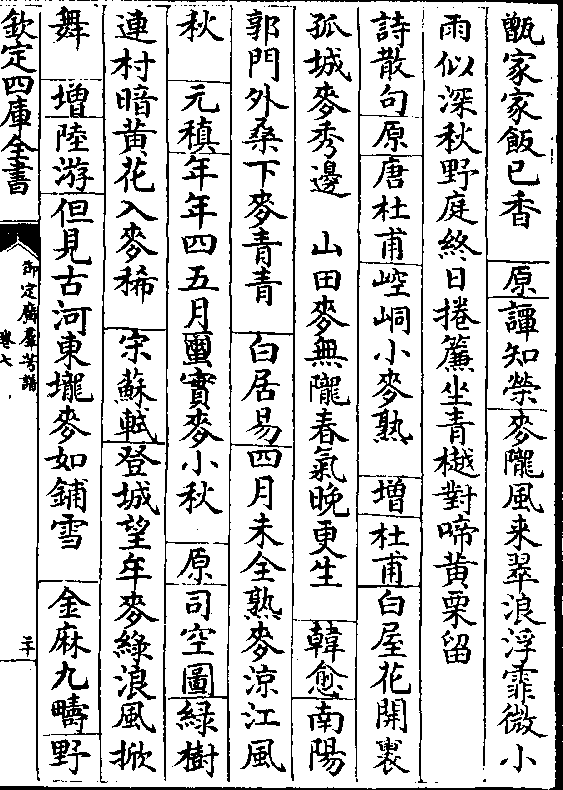 甑家家飯已香　原譚知柴麥隴風来翠浪浮霏微小
雨似深秋野庭終日捲簾坐青樾對啼黄栗留
詩散句原唐杜甫崆峒小麥熟　增杜甫白屋花開裏
孤城麥秀邊　山田麥無隴春氣晚更生　韓愈南陽
郭門外桑下麥青青　白居易四月未全熟麥涼江風
秋　元稹年年四五月䖝實麥小秋　原司空圖綠樹
連村暗黄花入麥稀　宋蘇軾登城望年麥綠浪風掀
舞　增陸游但見古河東壠麥如鋪雪　金麻九疇野
欽定四庫全書
御定廣羣芳譜
卷七
二十